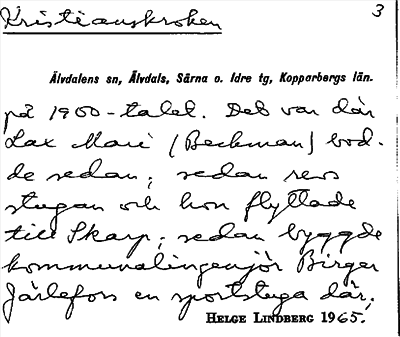 Kristianskroken
3
Älvdalens sn, Älvdals, Särna o. Idre tg, Kopparbergs län.
på 1900-talet. Det var där
Lax Mari (Beckman) bod-
de sedan; sedan revs
stugan och hon flyttade
till Skarp; sedan byggde
kommunalingenjör Birger
Järlefors en sportstuga där;
HELGE LINDBERG 1965.